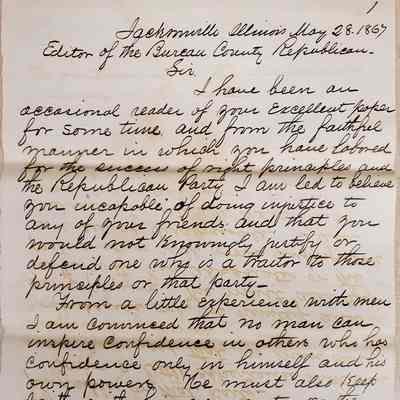 1
Jacksonville Illinois May 28. 1867
Editor of the Bureau County Republican-
Sir
I have been an
occasional reader of your Excellent paper
for some time and from the faithful
manner in which you have labored
for the success of right principles and
the Republican Party I am led to believe
you incapable of doing injustice to
any of your friends and that you
would not knowingly justify or
defend one who is a traitor to those
principles or that party-
From a little experience with men
I am convinced that no man can
inspire confidence in others who has
confidence only in himself and his
own powers. He must also Keep